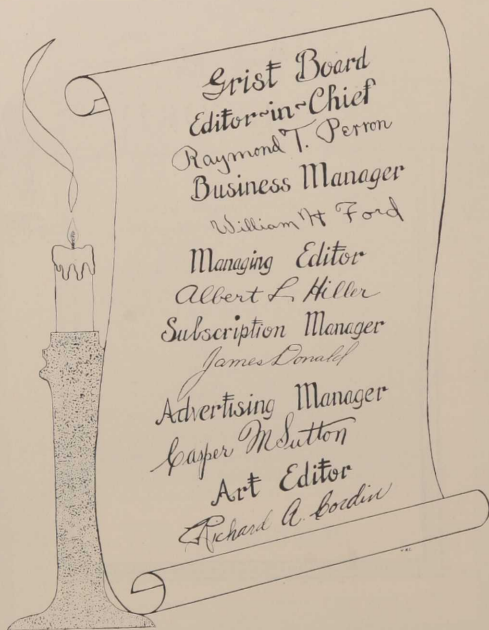 Grist Board
Editor~in~Chief
Raymond T. Perron
Business Manager
William H Ford
Managing Editor
Albert L Hiller
Subscription Manager
James Donald
Advertising Manager
Casper M Sutton
Art Editor
Richard A. Cordin